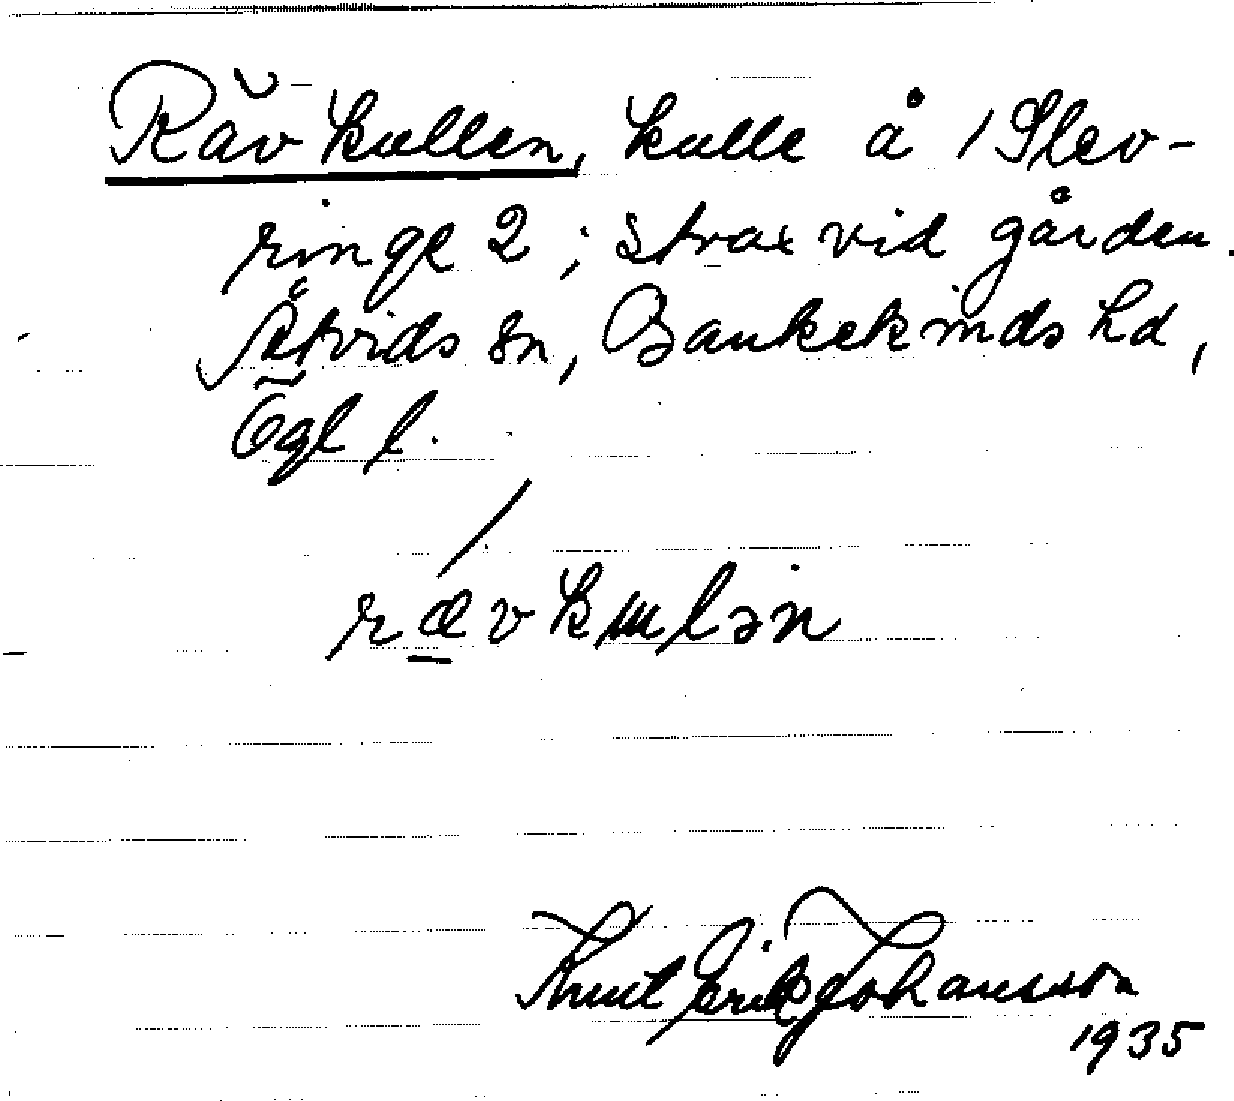 Rävkullen, kulle å 1 Slev-
ringe 2; strax vid gården.
Åtvids sn, Bankekinds hd,
Ögl l.
rævkulən
Knut Erik Johansson
1935